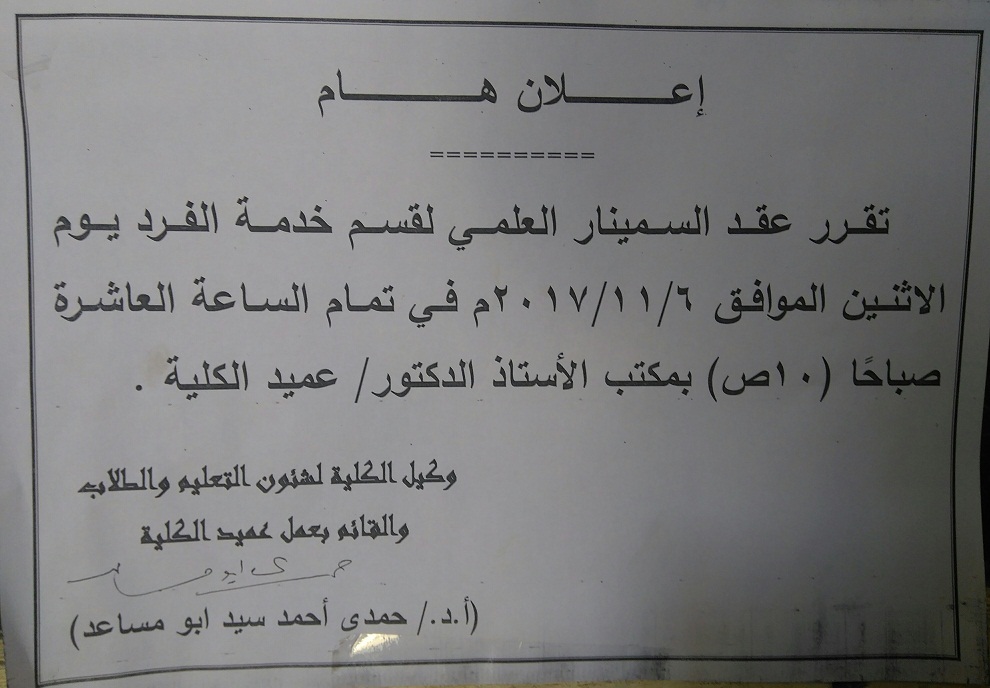 إعـــــلان هـــــــام
==========
تقرر عقد السمينار العلمي لقسم خدمة الفرد يوم
الاثنين الموافق ٢٠١٧/١١/٦م في تمام الساعة العاشرة
صباحًا (١٠ص) بمكتب الأستاذ الدكتور/ عميد الكلية .
وكيل الكلية لشئون التعليم والطلاب
والقائم بعمل عميد الكلية
(أ.د./ حمدى أحمد سيد ابو مساعد)